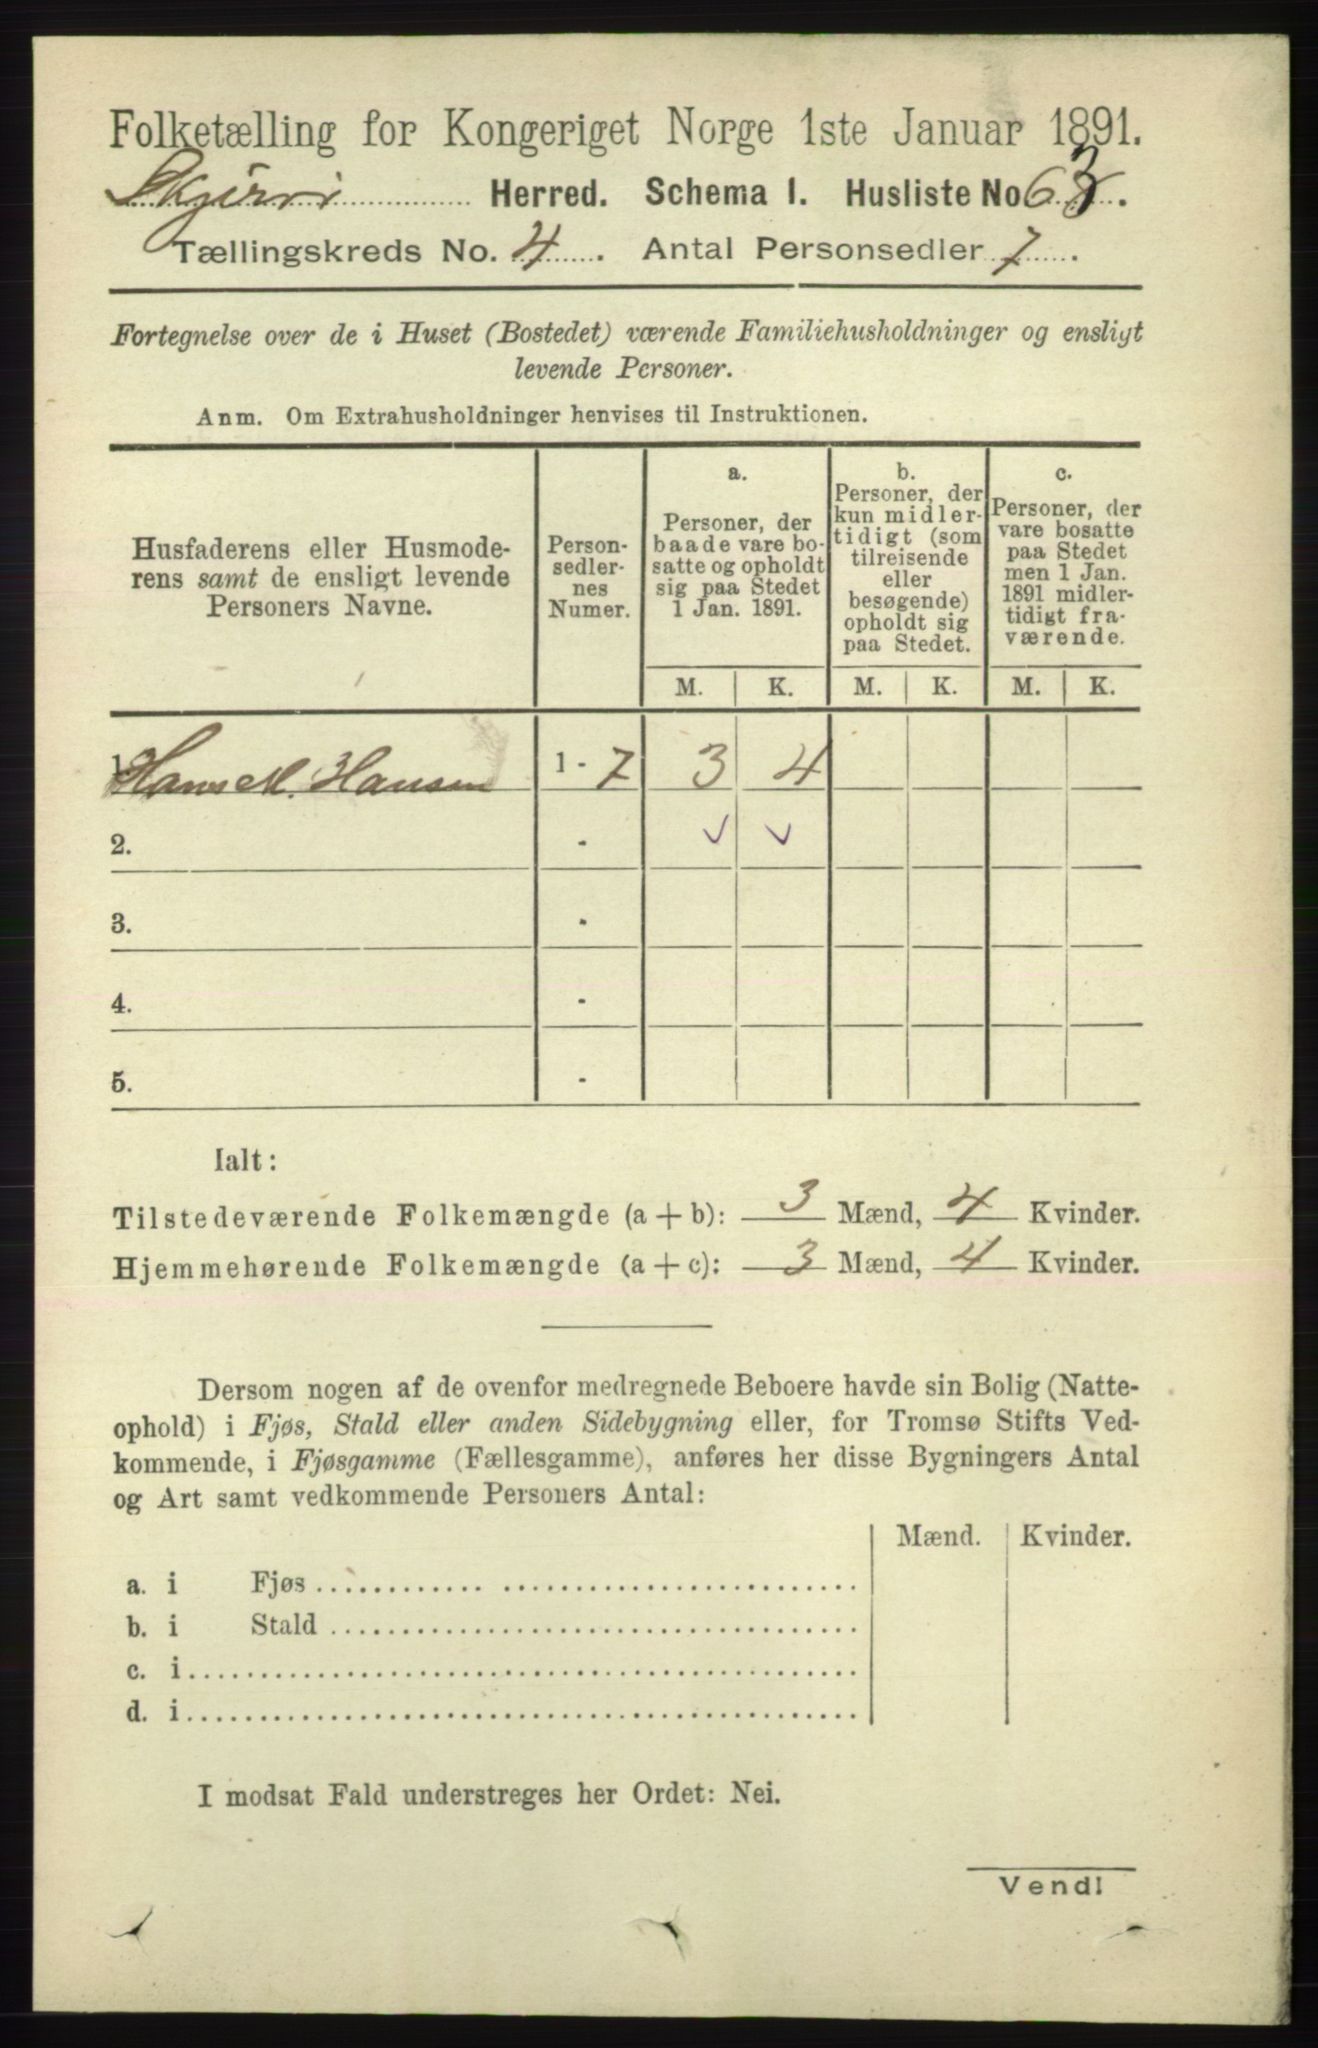 Folketælling for Kongeriget Norge 1ste Januar 1891.
Skjervø Herred. Schema I. Husliste No 63.
Tællingskreds No. 4. Antal Personsedler 7.
Fortegnelse over de i Huset (Bostedet) værende Familiehusholdninger og ensligt
levende Personer.
Anm. Om Extrahusholdninger henvises til Instruktionen.
Husfaderens eller Husmode-
rens samt de ensligt levende
Personers Navne.
Person-
sedler-
nes
Numer.
a.
Personer, der
baade vare bo-
satte og opholdt
sig paa Stedet
1 Jan. 1891.
b.
Personer, der
kun midler-
tidigt (som
tilreisende
eller
besøgende)
opholdt sig
paa Stedet.
c.
Personer, der
vare bosatte
paa Stedet
men 1 Jan.
1891 midler-
tidigt fra-
værende.
M. K. M. K. M. K.
1. Hans M. Hansen 1 - 7 3 4
2. - ✓ ✓
3. -
4. -
5. -
Ialt:
Tilstedeværende Folkemængde (a + b): 3 Mænd, 4 Kvinder.
Hjemmehørende Folkemængde (a + c): 3 Mænd, 4 Kvinder.
Dersom nogen af de ovenfor medregnede Beboere havde sin Bolig (Natte-
ophold) i Fjøs, Stald eller anden Sidebygning eller, for Tromsø Stifts Ved-
kommende, i Fjøsgamme (Fællesgamme), anføres her disse Bygningers Antal
og Art samt vedkommende Personers Antal:
Mænd. Kvinder.
a. i Fjøs
b. i Stald
c. i
d. i
I modsat Fald understreges her Ordet: Nei.
Vend!